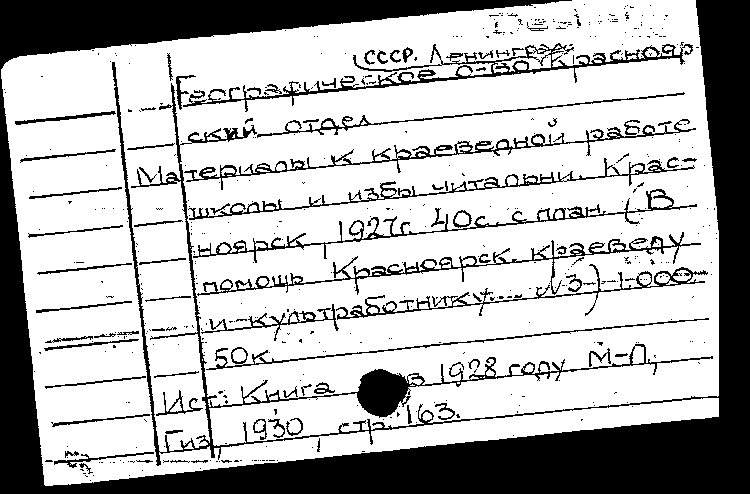 (СССР. Ленинград)
Географическое о-во. Краснояр
ский отдел
Материалы к краеведной работе
школы и избы читальни. Крас-
ноярск, 1927г. 40с. с план. (В
помощь Красноярск. краеведу
и культработнику.... №3) 1.000.
50к.
Ист: Книга в 1928 году. М-Л.,
Гиз, 1930, стр. 163.